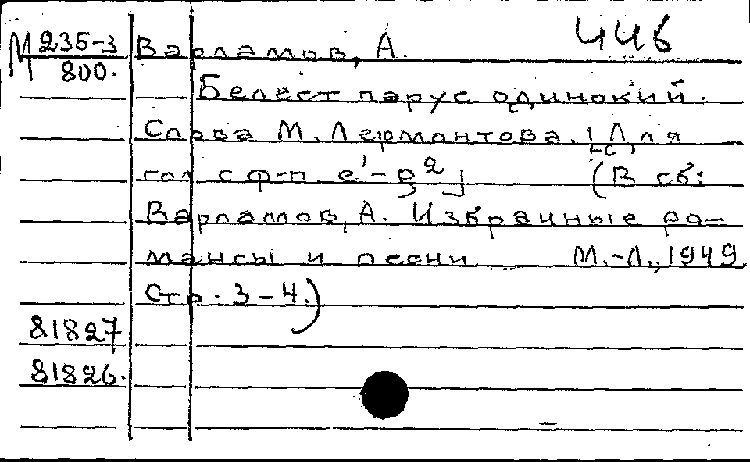 446
М 235-3 Варламов, А.
800. Белеет парус одинокий.
Слова М. Лермантова. [Для
гол. с ф-п. e'-g²] (В сб:
Варламов, А. Избранные ро-
мансы и песни М.-Л., 1949
Стр. 3-4.)
81827
81826.